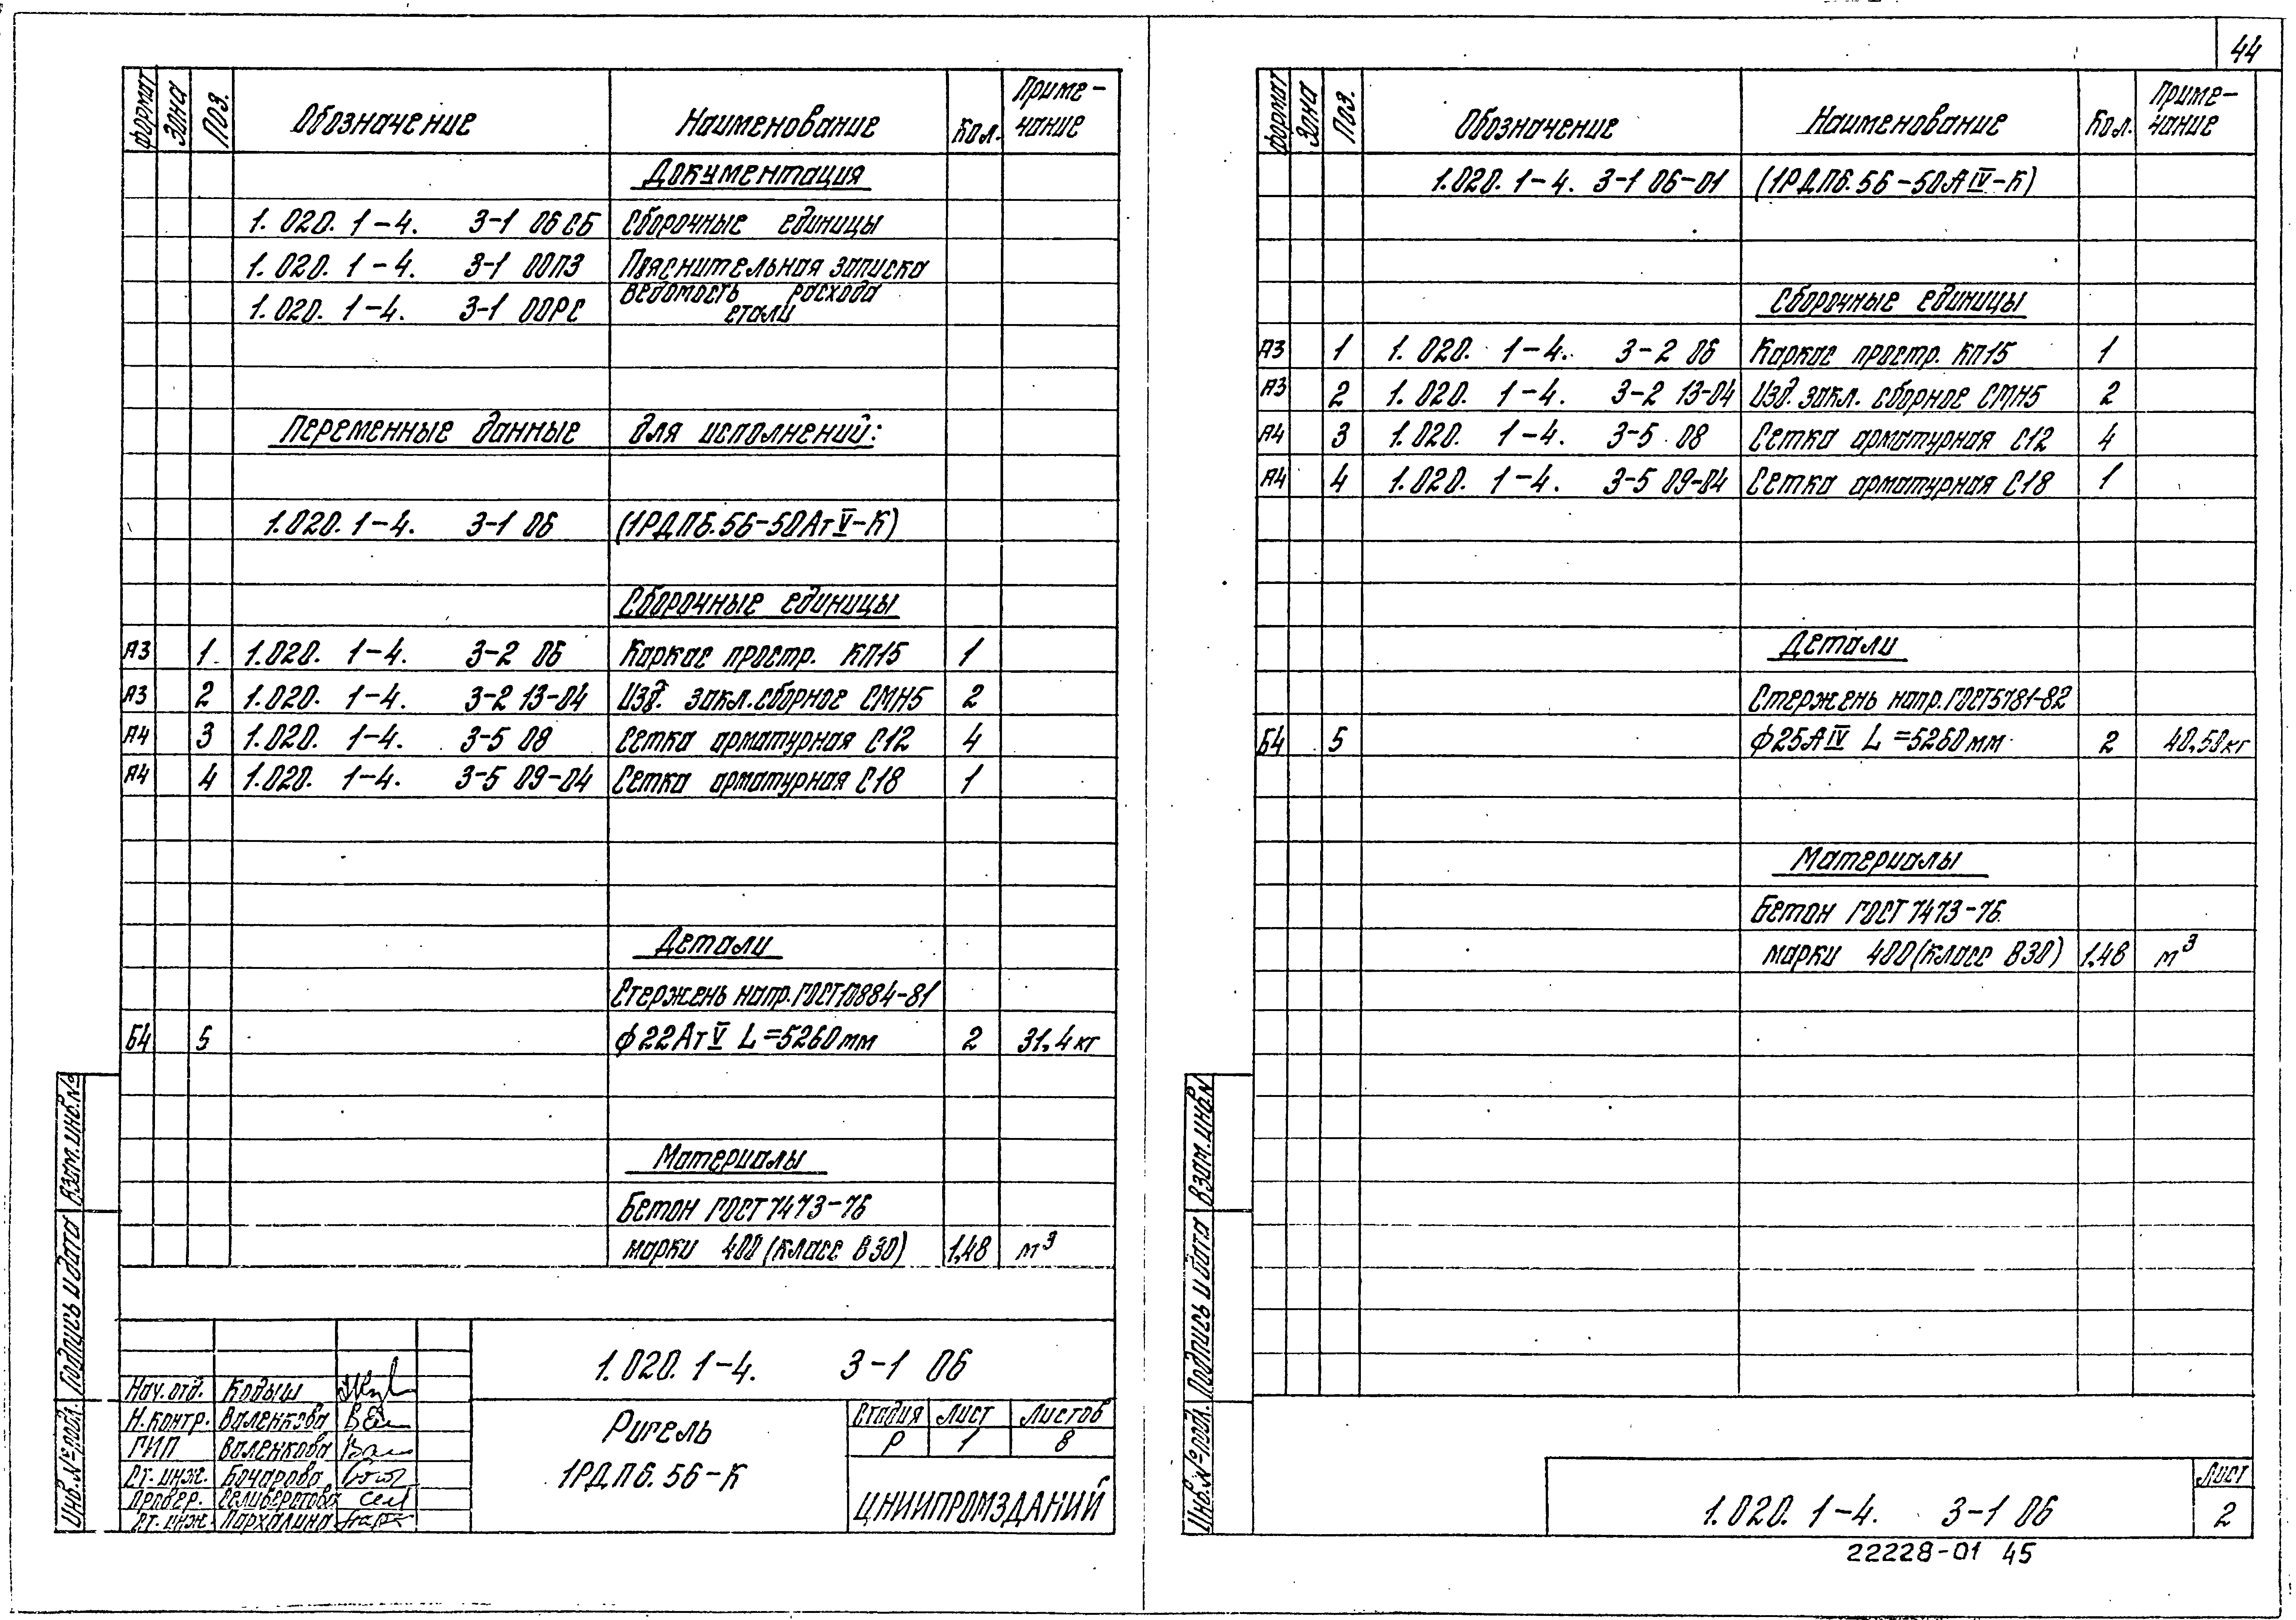 44
формат Зона Поз. Обозначение Наименование Кол. Приме-чание
Документация
1.020.1-4. 3-1 06СБ Сборочные единицы
1.020.1-4. 3-1 00ПЗ Пояснительная записка
1.020.1-4. 3-1 00РС Ведомость расхода стали
Переменные данные для исполнений:
1.020.1-4. 3-1 06 (1РДП6.56-50АтV-К)
Сборочные единицы
А3 1 1.020. 1-4. 3-2 06 Каркас простр. КП15 1
А3 2 1.020. 1-4. 3-2 13-04 Изд. закл. сборное СМН5 2
А4 3 1.020. 1-4. 3-5 08 Сетка арматурная С12 4
А4 4 1.020. 1-4. 3-5 09-04 Сетка арматурная С18 1
Детали
Стержень напр. ГОСТ10884-81
Б4 5 ϕ22АтV L=5260мм 2 31,4кг
Материалы
Бетон ГОСТ 7473-76
марки 400 (класс В30) 1,48 м³
1.020.1-4. 3-1 06
Нач.отд. Кодыш
Н.контр. Валенкова
ГИП Валенкова
Ст. инж. Бочарова
Провер. Селиверстова
Ст. инж. Пархалина
Ригель
1РДП6.56-К
Стадия Лист Листов
Р 1 8
ЦНИИПРОМЗДАНИЙ
Инв.№подл. Подпись и дата Взам.инв.№
формат Зона Поз. Обозначение Наименование Кол. Приме-чание
1.020.1-4. 3-1 06-01 (1РДП6.56-50АIV-К)
Сборочные единицы
А3 1 1.020. 1-4. 3-2 06 Каркас простр. КП15 1
А3 2 1.020. 1-4. 3-2 13-04 Изд. закл. сборное СМН5 2
А4 3 1.020. 1-4. 3-5 08 Сетка арматурная С12 4
А4 4 1.020. 1-4. 3-5 09-04 Сетка арматурная С18 1
Детали
Стержень напр. ГОСТ5781-82
Б4 5 ϕ25АIV L=5260мм 2 40,50кг
Материалы
Бетон ГОСТ 7473-76
марки 400 (класс В30) 1,48 м³
Инв.№подл. Подпись и дата Взам.инв.№
1.020.1-4. 3-1 06
Лист
2
22228-01 45